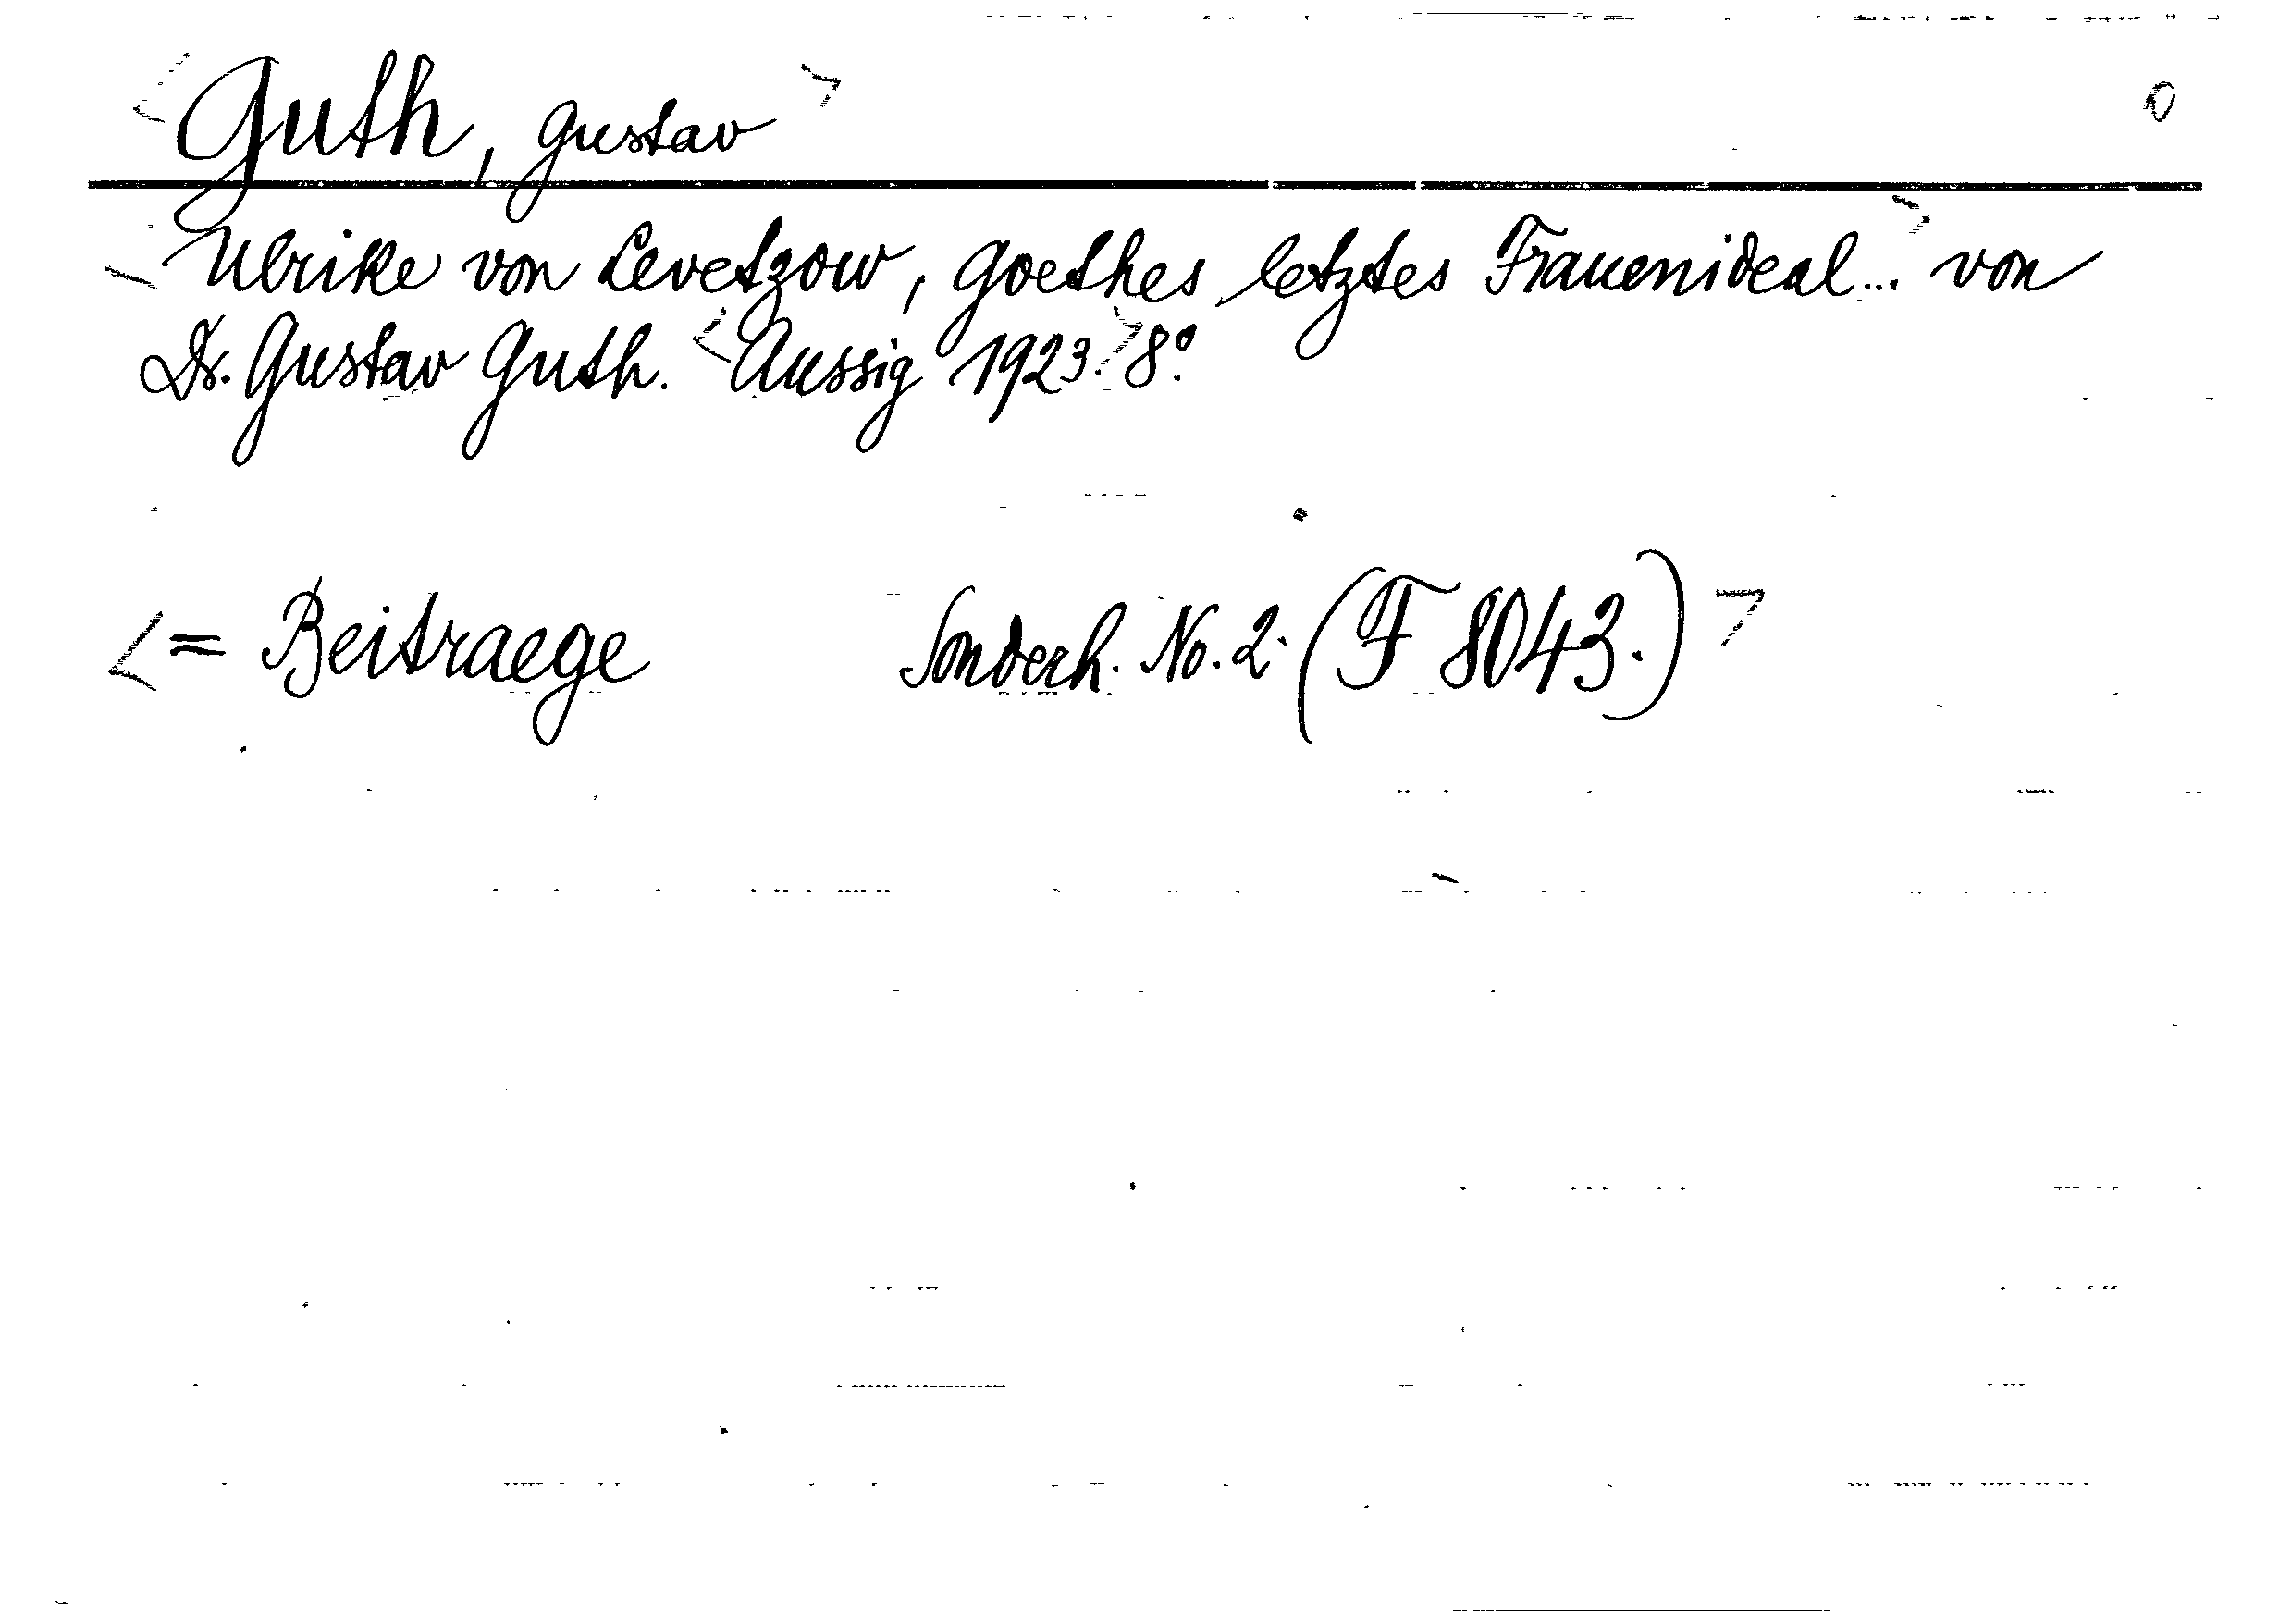 <Guth, Gustav> 0
<Ulrike von Levetzow, Goethes letztes Frauenideal...> von
Dr. Gustav Guth. <Aussig 1923.> 8°.
<= Beitraege Sonderh. No. 2. (F 8043.)>